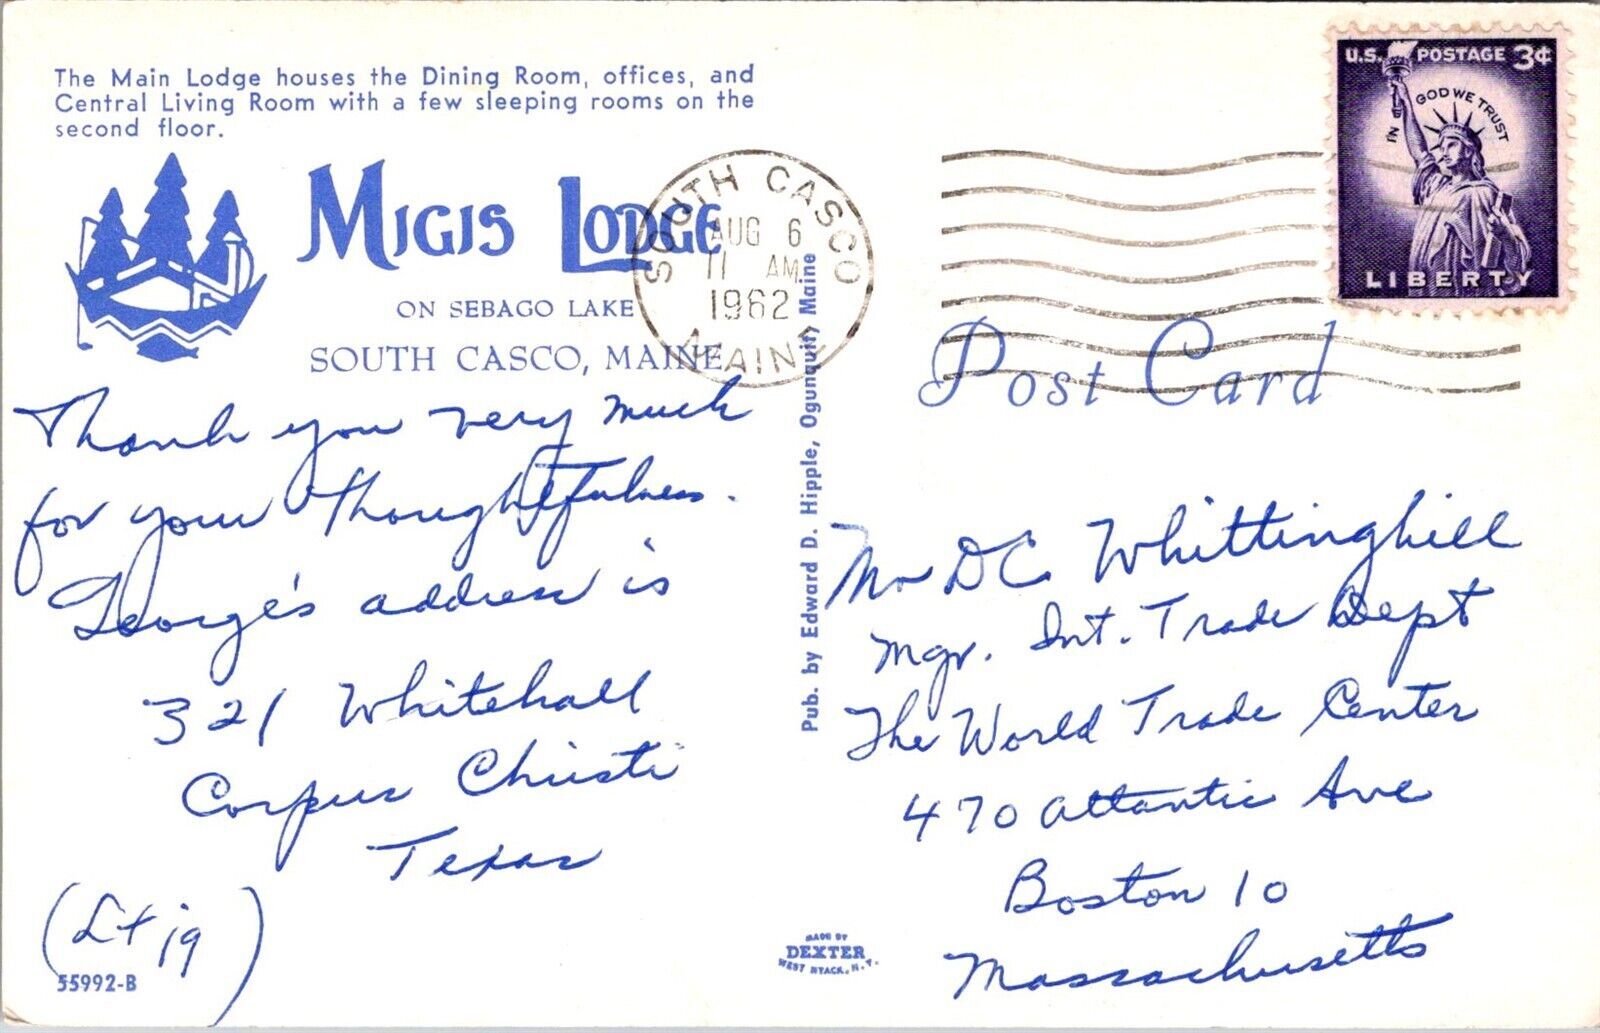 The Main Lodge houses the Dining Room, offices, and
Central Living Room with a few sleeping rooms on the
second floor.
MIGIS LODGE
ON SEBAGO LAKE
SOUTH CASCO, MAINE
SOUTH CASCO
AUG 6
11 AM
1962
MAINE
U.S. POSTAGE 3¢
IN GOD WE TRUST
LIBERTY
Post Card
Thank you very much
for your thoughtfulness.
George's address is
321 Whitehall
Corpus Christi
Texas
(Lt jg)
55992-B
Pub. by Edward D. Hipple, Ogunquit, Maine
MADE BY
DEXTER
WEST NYACK, N.Y.
Mr D C Whittinghill
Mgr. Int. Trade Dept
The World Trade Center
470 Atlantic Ave
Boston 10
Massachusetts